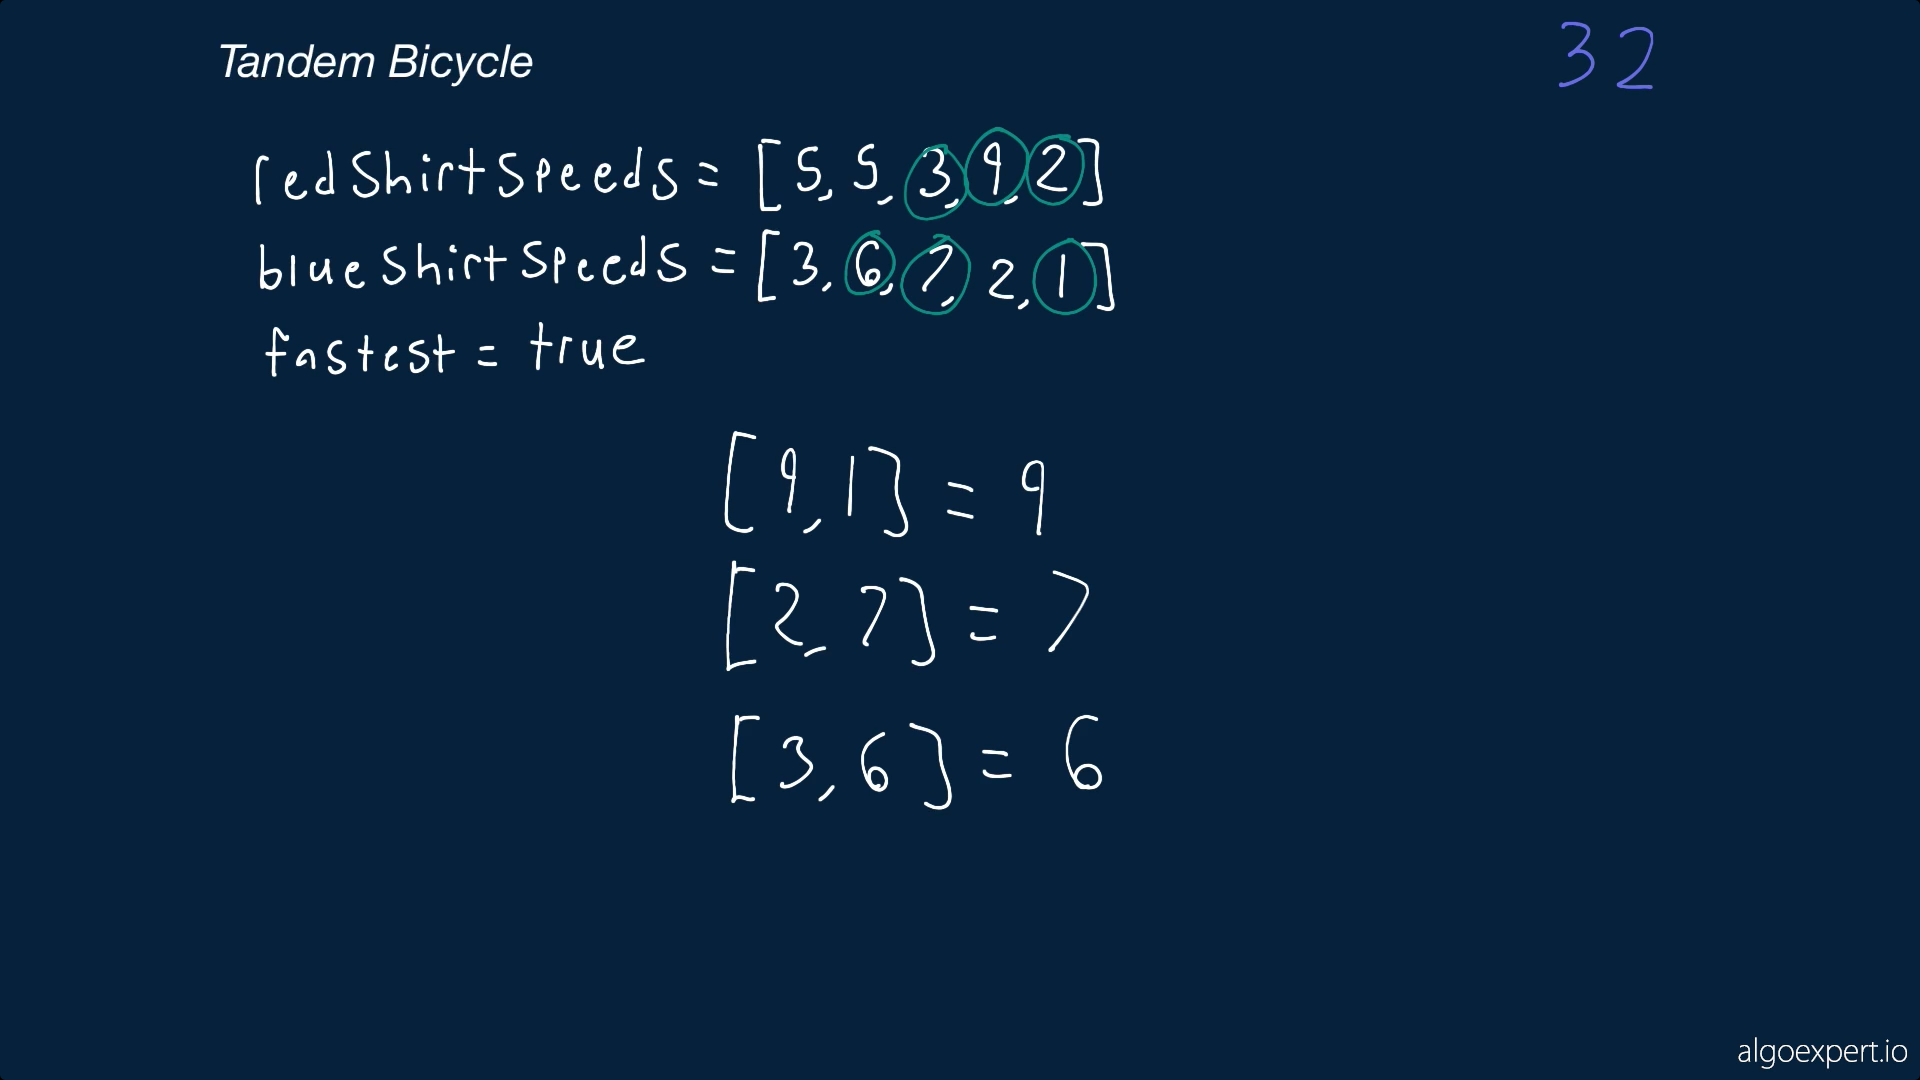 Tandem Bicycle
32
redShirtSpeeds = [5, 5, 3, 9, 2]
blueShirtSpeeds = [3, 6, 7, 2, 1]
fastest = true
[9, 1] = 9
[2, 7] = 7
[3, 6] = 6
algoexpert.io